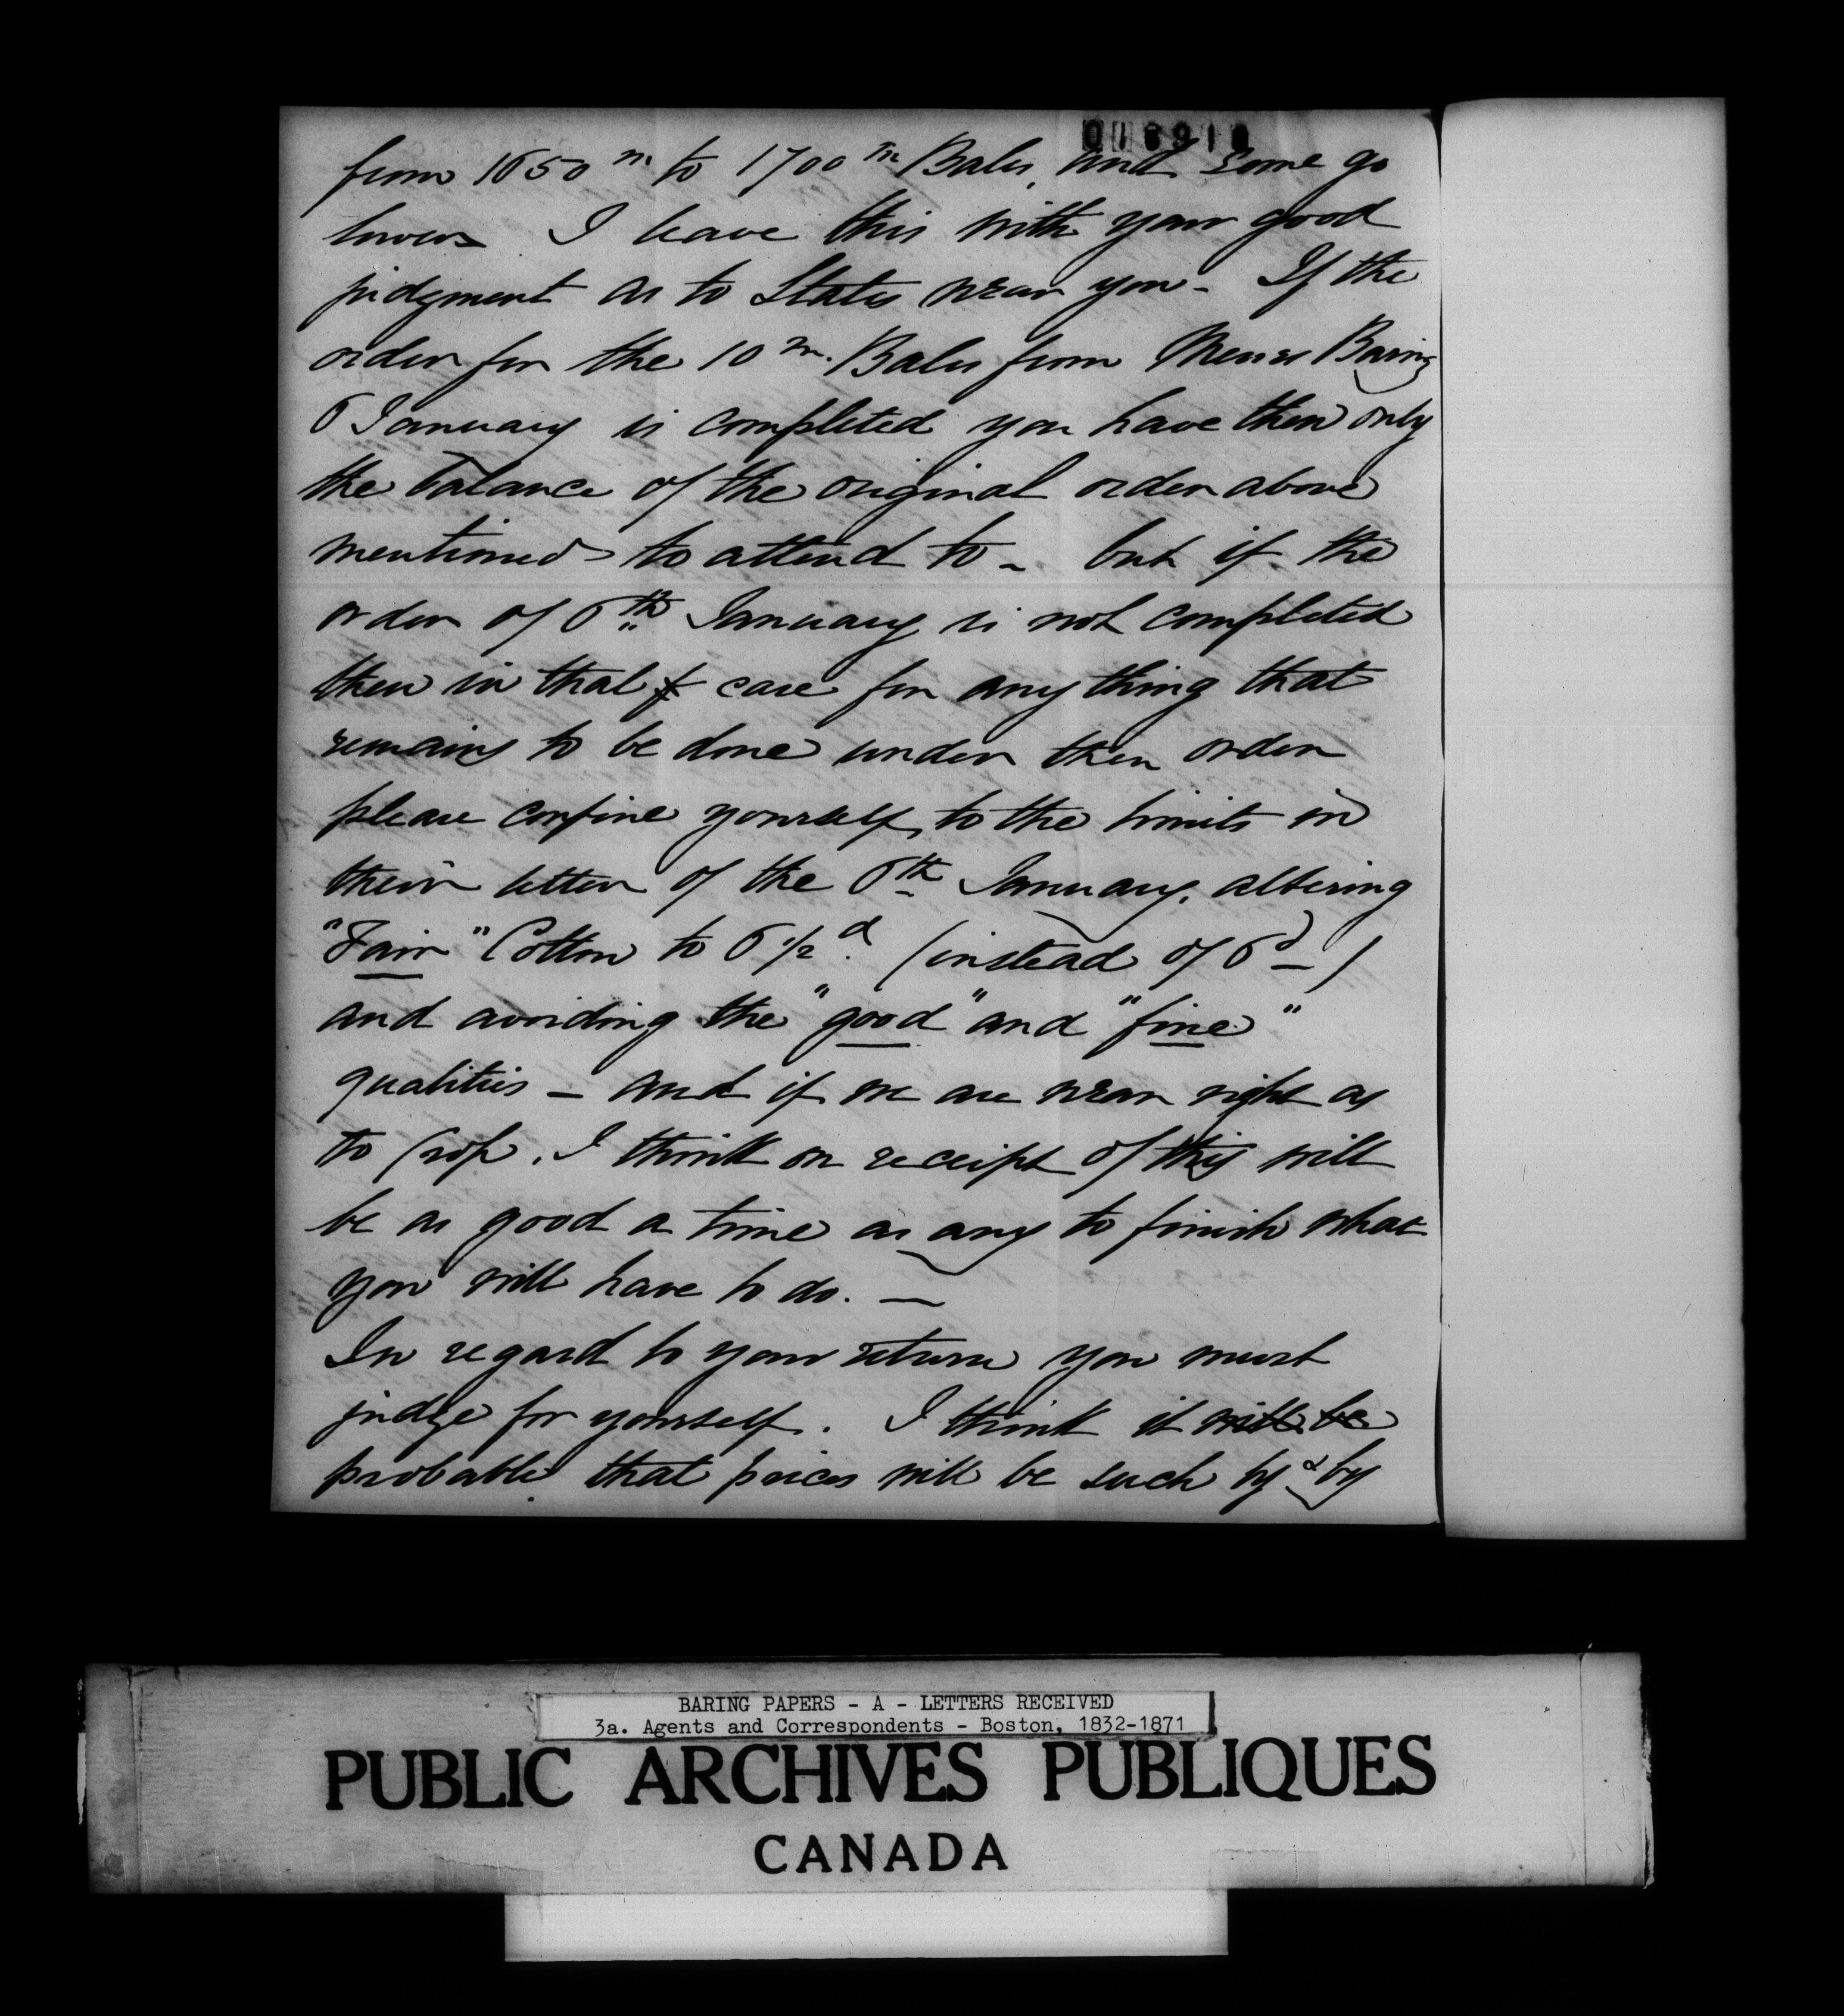 016910
from 1650 m to 1700 m Bales, and some go
lower I leave this with your good
judgment as to States near you - If the
order for the 10 m. Bales from Messrs Baring
6 January is completed you have then only
the balance of the original order above
mentioned to attend to - but if the
order of 6th January is not completed
then in that case for any thing that
remains to be done under their order
please confine yourself to the limits in
their letter of the 6th January, altering
"Fair" Cotton to 6 1/2 d. (instead of 6d -)
and avoiding the "good" and "fine"
qualities - and if we are near right as
to Crop, I think on receipt of this will
be as good a time as any to finish what
you will have to do. —
In regard to your return you must
judge for yourself. I think it will be
probable that prices will be such by & by
BARING PAPERS - A - LETTERS RECEIVED
3a. Agents and Correspondents - Boston, 1832-1871
PUBLIC ARCHIVES PUBLIQUES
CANADA